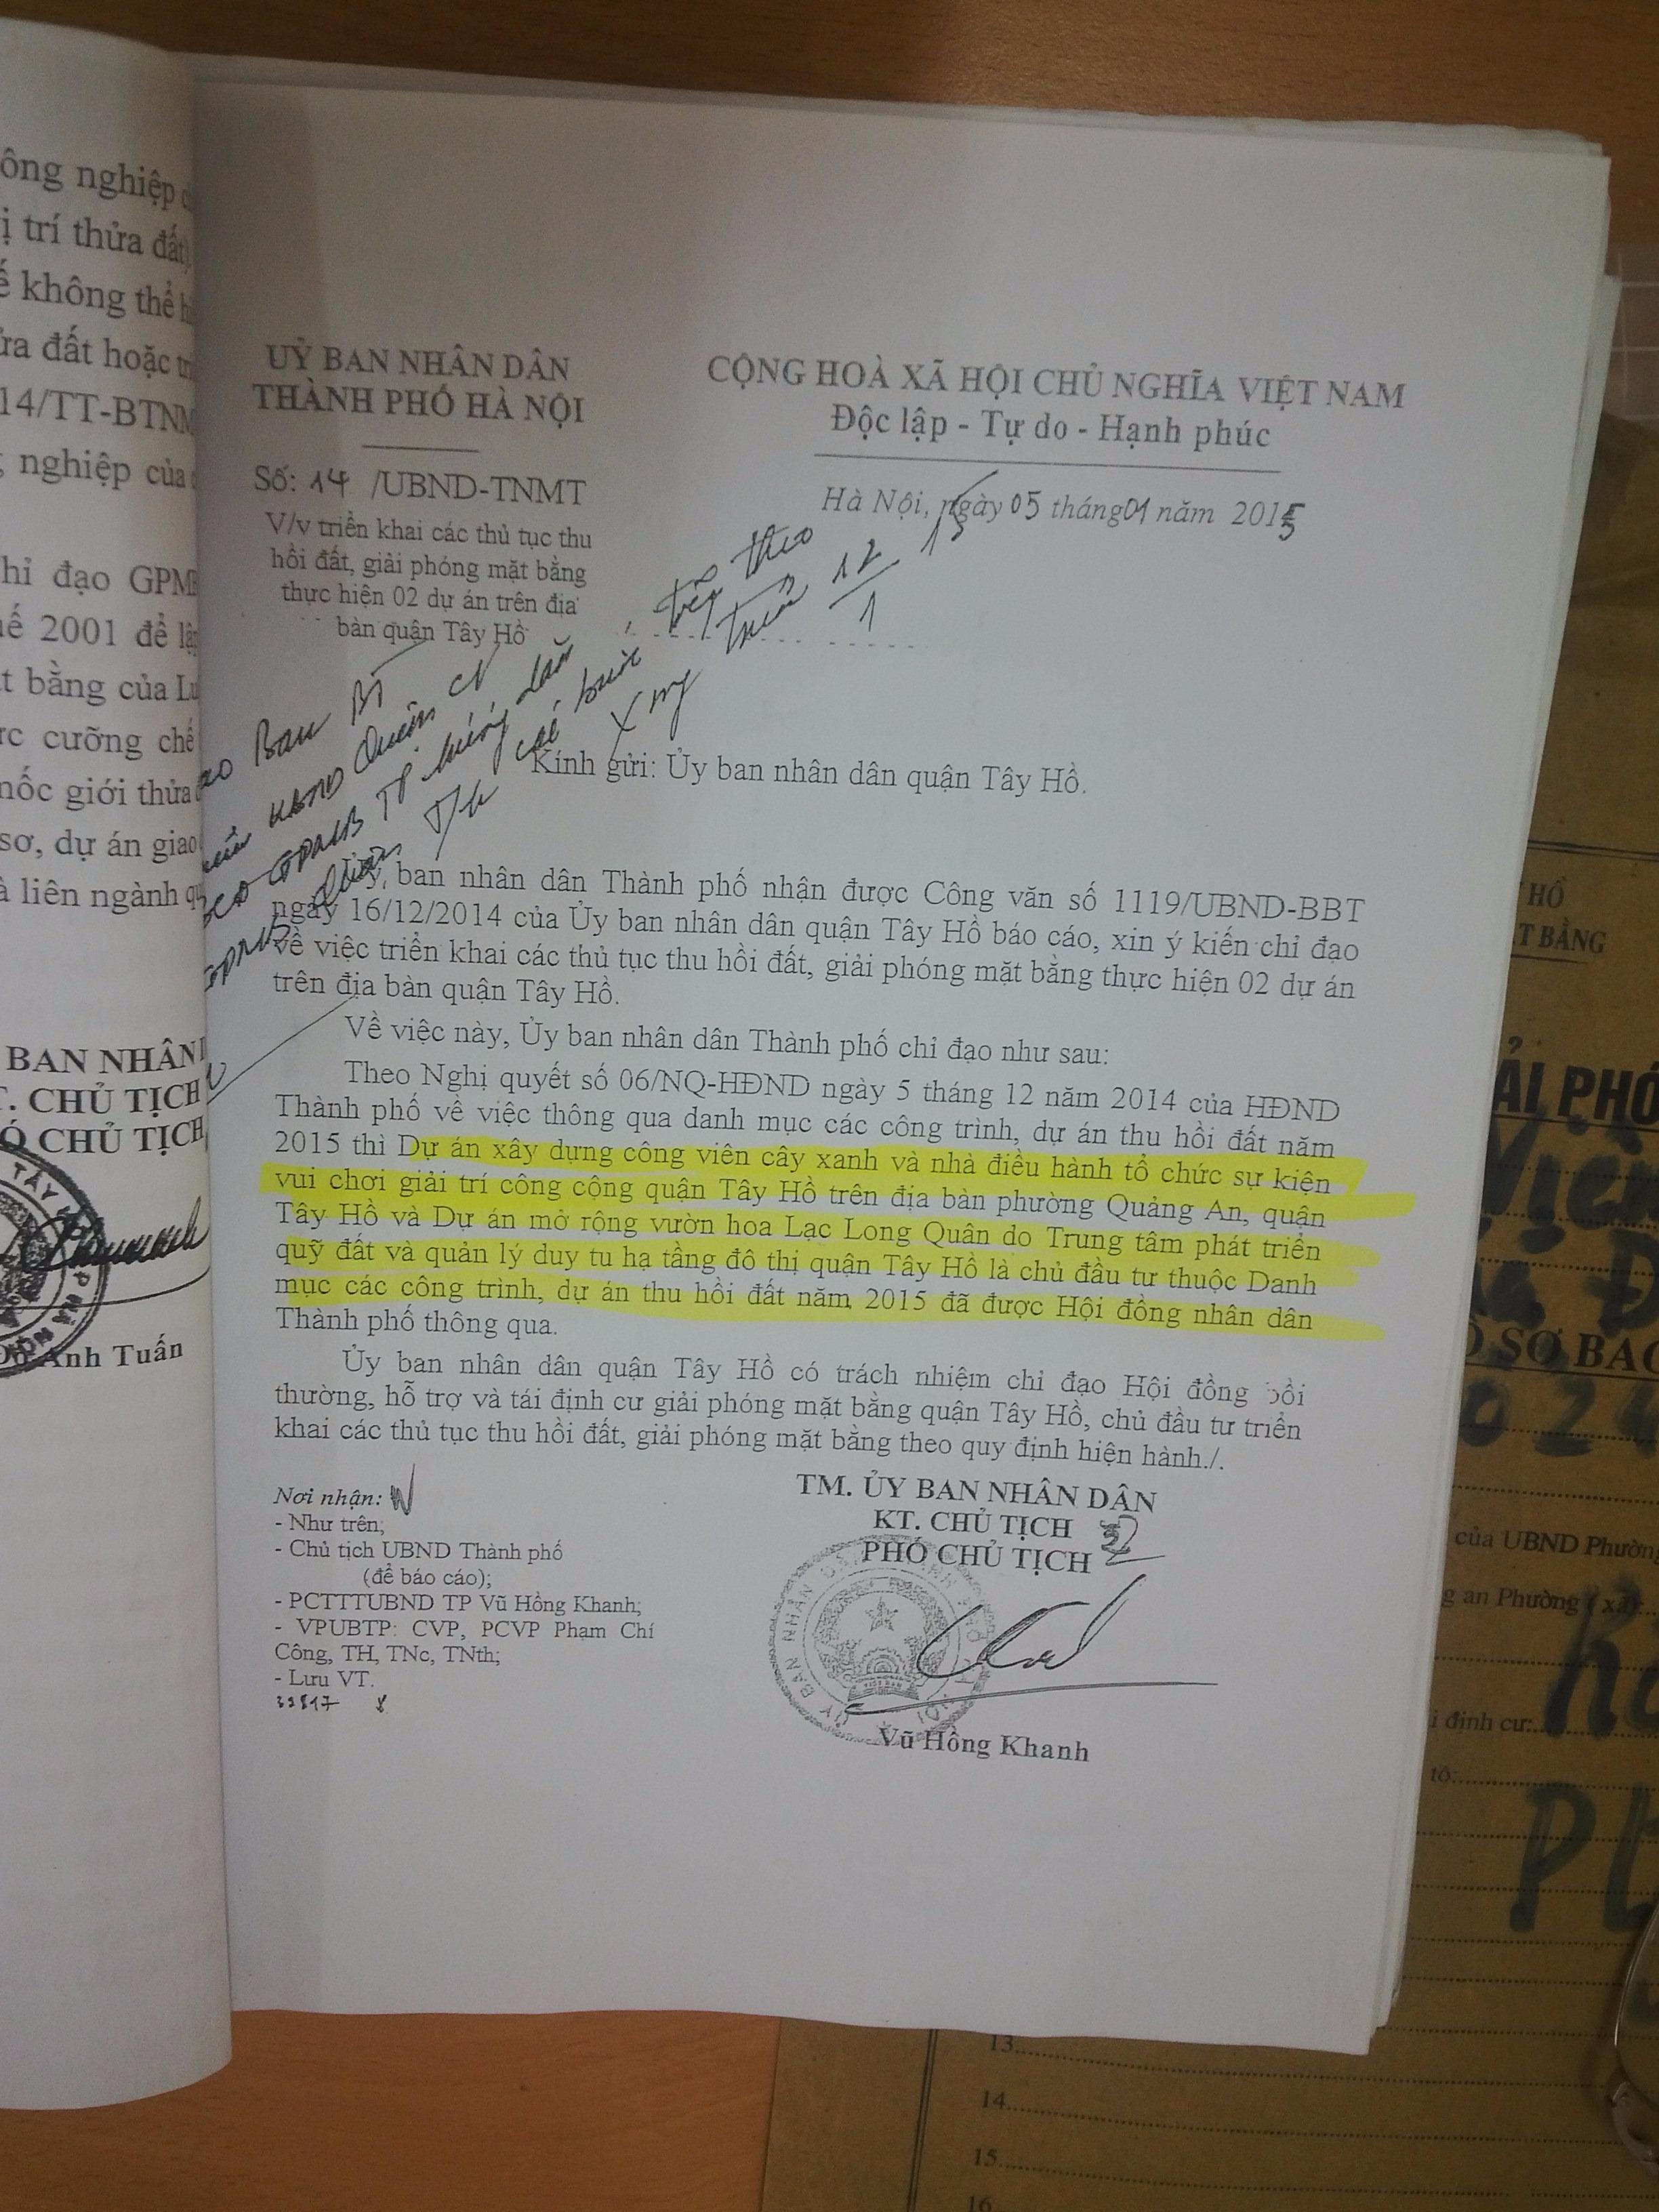 ông nghiệp
ị trí thửa đất)
ế không thể
ửa đất hoặc
14/TT-BTNM
nghiệp của
hỉ đạo GPM
uế 2001 để lậ
t bằng của Lu
rc cưỡng chế
nốc giới thửa
sơ, dự án giao
à liên ngành
BAN NHÂN
T. CHỦ TỊCH
Ó CHỦ TỊCH
Đỗ Anh Tuấn
UỶ BAN NHÂN DÂN
THÀNH PHỐ HÀ NỘI
Số: 14 /UBND-TNMT
V/v triển khai các thủ tục thu
hồi đất, giải phóng mặt bằng
thực hiện 02 dự án trên địa
bàn quận Tây Hồ
CỘNG HOÀ XÃ HỘI CHỦ NGHĨA VIỆT NAM
Độc lập - Tự do - Hạnh phúc
Hà Nội, ngày 05 tháng 01 năm 2015
Ban BT
UBND Quận
GPMB TP hướng dẫn, tiếp theo
các bước
12/1 15
Kính gửi: Ủy ban nhân dân quận Tây Hồ.
Ủy ban nhân dân Thành phố nhận được Công văn số 1119/UBND-BBT
ngày 16/12/2014 của Ủy ban nhân dân quận Tây Hồ báo cáo, xin ý kiến chỉ đạo
về việc triển khai các thủ tục thu hồi đất, giải phóng mặt bằng thực hiện 02 dự án
trên địa bàn quận Tây Hồ.
Về việc này, Ủy ban nhân dân Thành phố chỉ đạo như sau:
Theo Nghị quyết số 06/NQ-HĐND ngày 5 tháng 12 năm 2014 của HĐND
Thành phố về việc thông qua danh mục các công trình, dự án thu hồi đất năm
2015 thì Dự án xây dựng công viên cây xanh và nhà điều hành tổ chức sự kiện
vui chơi giải trí công cộng quận Tây Hồ trên địa bàn phường Quảng An, quận
Tây Hồ và Dự án mở rộng vườn hoa Lạc Long Quân do Trung tâm phát triển
quỹ đất và quản lý duy tu hạ tầng đô thị quận Tây Hồ là chủ đầu tư thuộc Danh
mục các công trình, dự án thu hồi đất năm 2015 đã được Hội đồng nhân dân
Thành phố thông qua.
Ủy ban nhân dân quận Tây Hồ có trách nhiệm chỉ đạo Hội đồng bồi
thường, hỗ trợ và tái định cư giải phóng mặt bằng quận Tây Hồ, chủ đầu tư triển
khai các thủ tục thu hồi đất, giải phóng mặt bằng theo quy định hiện hành./.
Nơi nhận:
- Như trên;
- Chủ tịch UBND Thành phố
(để báo cáo);
- PCTTTUBND TP Vũ Hồng Khanh;
- VPUBTP: CVP, PCVP Phạm Chí
Công, TH, TNc, TNth;
- Lưu VT.
TM. ỦY BAN NHÂN DÂN
KT. CHỦ TỊCH
PHÓ CHỦ TỊCH
Vũ Hồng Khanh
HỒ
T BẰNG
ẢI PHÓ
Viện
Đ
Ồ SƠ BA
024
của UBND Phường
g an Phường ( xã)
i định cư:
tô:
13
14
15
16